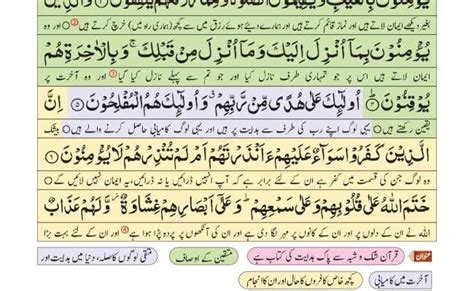 يُؤْمِنُوْنَ بِالْغَيْبِ وَيُقِيْمُوْنَ الصَّلٰوةَ وَمِمَّا رَزَقْنٰهُمْ يُنْفِقُوْنَ
بغیر دیکھے ایمان لاتے ہیں اور نماز قائم کرتے ہیں اور ہمارے دیئے ہوئے رزق میں سے کچھ (ہماری راہ میں) خرچ کرتے ہیں اور وہ
يُؤْمِنُوْنَ بِمَآ اُنْزِلَ اِلَيْكَ وَمَآ اُنْزِلَ مِنْ قَبْلِكَ وَبِالْاٰخِرَةِ هُمْ
ایمان لاتے ہیں اس پر جو تمہاری طرف نازل کیا اور جو تم سے پہلے نازل کیا گیا اور وہ آخرت پر
يُوْقِنُوْنَ ۴ اُولٰٓئِكَ عَلٰى هُدًى مِّنْ رَّبِّهِمْ وَاُولٰٓئِكَ هُمُ الْمُفْلِحُوْنَ ۵ اِنَّ
یقین رکھتے ہیں یہی لوگ اپنے رب کی طرف سے ہدایت پر ہیں اور یہی لوگ کامیابی حاصل کرنے والے ہیں بیشک
الَّذِيْنَ كَفَرُوْا سَوَآءٌ عَلَيْهِمْ ءَاَنْذَرْتَهُمْ اَمْ لَمْ تُنْذِرْهُمْ لَا يُؤْمِنُوْنَ ۶
وہ لوگ جن کی قسمت میں کفر ہے ان کے لئے برابر ہے کہ آپ انہیں ڈرائیں یا نہ ڈرائیں، یہ ایمان نہیں لائیں گے
خَتَمَ اللّٰهُ عَلٰى قُلُوْبِهِمْ وَعَلٰى سَمْعِهِمْ وَعَلٰٓى اَبْصَارِهِمْ غِشَاوَةٌ وَّلَهُمْ عَذَابٌ
اللہ نے ان کے دلوں پر اور ان کے کانوں پر مہر لگا دی ہے اور ان کی آنکھوں پر پردہ پڑا ہوا ہے اور ان کے لئے بہت بڑا
عنوان قرآن شک و شبہ سے پاک ہدایت کی کتاب ہے متقین کے اوصاف متقی لوگوں کا صلہ، دنیا میں ہدایت اور
آخرت میں کامیابی کچھ خاص کافروں کا حال اور ان کا انجام